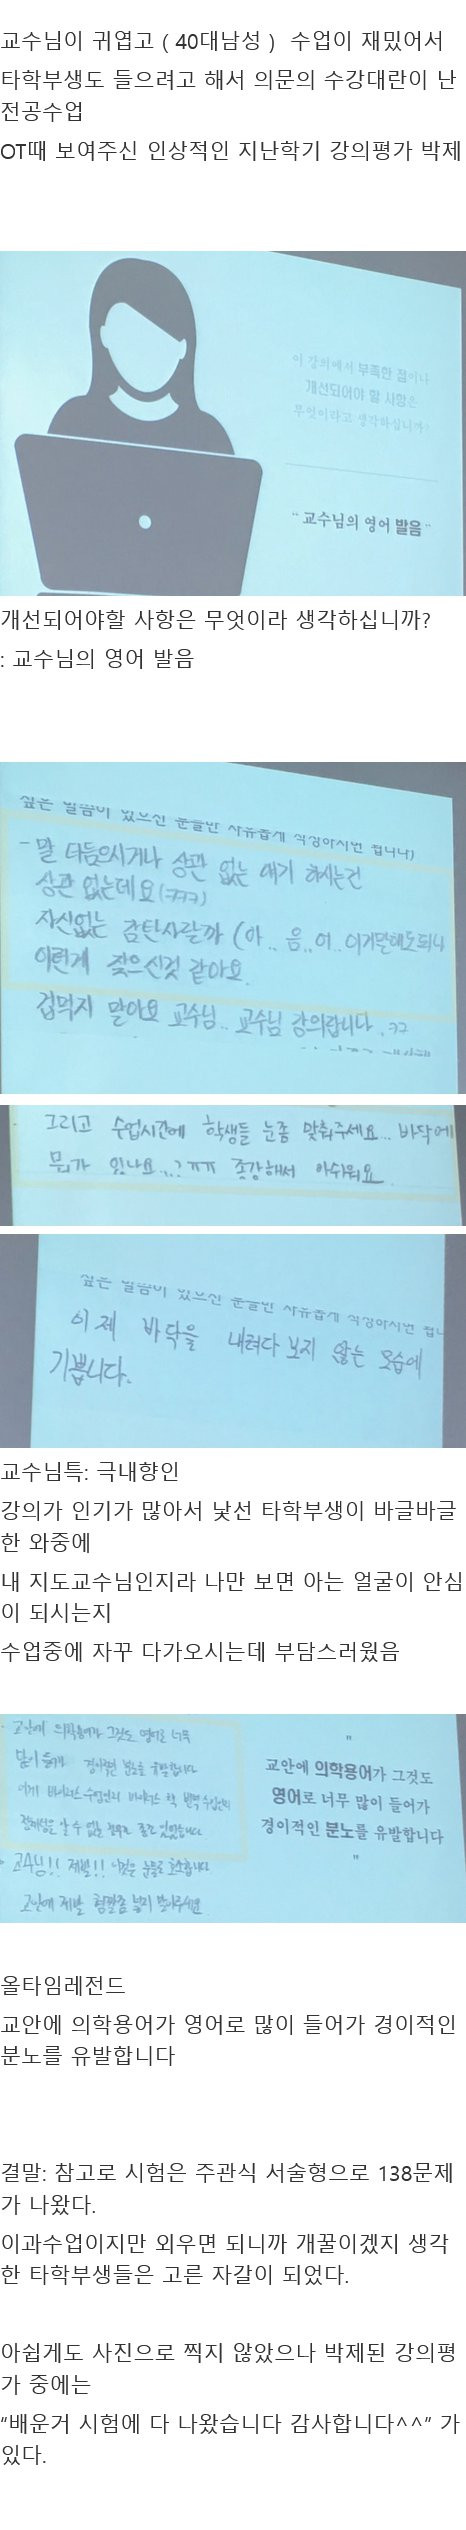 교수님이 귀엽고 ( 40대남성 )  수업이 재밌어서
타학부생도 들으려고 해서 의문의 수강대란이 난
전공수업
OT때 보여주신 인상적인 지난학기 강의평가 박제
이 강의에서 부족한 점이나
개선되어야 할 사항은
무엇이라고 생각하십니까?
“ 교수님의 영어 발음 ”
개선되어야할 사항은 무엇이라 생각하십니까?
: 교수님의 영어 발음
싶은 말씀이 있으신 분들만 자유롭게 작성하시면 됩니다)
- 말 더듬으시거나 상관 없는 얘기 하시는건
상관 없는데요(ㅋㅋㅋ)
자신없는 감탄사랄까 (아.. 음..어..이거말해도되나
이런게 잦으신것 같아요.
겁먹지 말아요 교수님.. 교수님 강의랍니다.ㅋㅋ
그리고 수업시간에 학생들 눈좀 맞춰주세요... 바닥에
뭐가 있나요...? ㅠㅠ 종강해서 아쉬워요.
싶은 말씀이 있으신 분들만 자유롭게 작성하시면 됩니
이제 바닥을 내려다 보지 않는 모습에
기쁩니다.
교수님특: 극내향인
강의가 인기가 많아서 낯선 타학부생이 바글바글
한 와중에
내 지도교수님인지라 나만 보면 아는 얼굴이 안심
이 되시는지
수업중에 자꾸 다가오시는데 부담스러웠음
· 교안에 의학용어가 그것도 영어로 너무
많이 들어가 경이적인 분노를 유발합니다
· 교수님!! 제발!!
교안에 제발
"
교안에 의학용어가 그것도
영어로 너무 많이 들어가
경이적인 분노를 유발합니다
"
올타임레전드
교안에 의학용어가 영어로 많이 들어가 경이적인
분노를 유발합니다
결말: 참고로 시험은 주관식 서술형으로 138문제
가 나왔다.
이과수업이지만 외우면 되니까 개꿀이겠지 생각
한 타학부생들은 고른 자갈이 되었다.
아쉽게도 사진으로 찍지 않았으나 박제된 강의평
가 중에는
“배운거 시험에 다 나왔습니다 감사합니다^^” 가
있다.